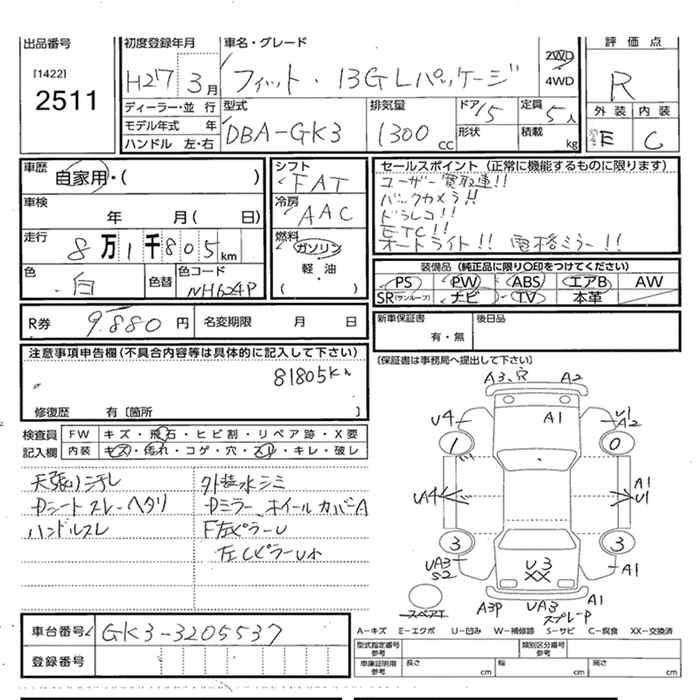 出品番号 初度登録年月 車名・グレード 評価点
[1422] 2511 H27 3月 フィット・13GLパッケージ 2WD 4WD R
ディーラー・並行 型式 排気量 ドア 15 定員 5人 外装 内装
モデル年式 年 DBA-GK3 1300cc 形状 積載 kg E C
ハンドル 左・右
車歴 自家用・( ) シフト FAT セールスポイント(正常に機能するものに限ります)
車検 年 月( 日) 冷房 AAC ユーザー買取車!!
バックカメラ!!
ドラレコ!!
ETC!!
オートライト!! 電格ミラー!!
走行 8万1千805km 燃料 ガソリン・軽・油( )
色 白 色替 色コード NH624P
装備品(純正品に限り○印をつけてください)
PS PW ABS エアB AW
SR(サンルーフ) ナビ TV 本革
R券 9.880円 名変期限 月 日 新車保証書 有・無 後日品
注意事項申告欄(不具合内容等は具体的に記入して下さい) [保証書は事務局へ提出して下さい]
81805km
修復歴 有[箇所 ]
検査員記入欄 FW キズ・飛石・ヒビ割・リペア跡・X要
内装 キズ・汚れ・コゲ・穴・スリ・キレ・破レ
天張り汚レ 外装水シミ
Dシートスレーヘタリ Dミラー、ホイールカバーA
ハンドルスレ F左ピラーU
左CピラーU小
A3、穴 A2
U4 A1 U1 A2
1 0
UA4 A1 U1
3 3
UA3 S2 U3 XX A1
スペアT A3P UA3 スプレーP A1
車台番号 GK3-3205537
登録番号
A-キズ E-エクボ U-凹み W-補修跡 S-サビ C-腐食 XX-交換済
型式指定番号参考 類別区分番号参考
車庫証明用参考 長さ cm 幅 cm 高さ cm